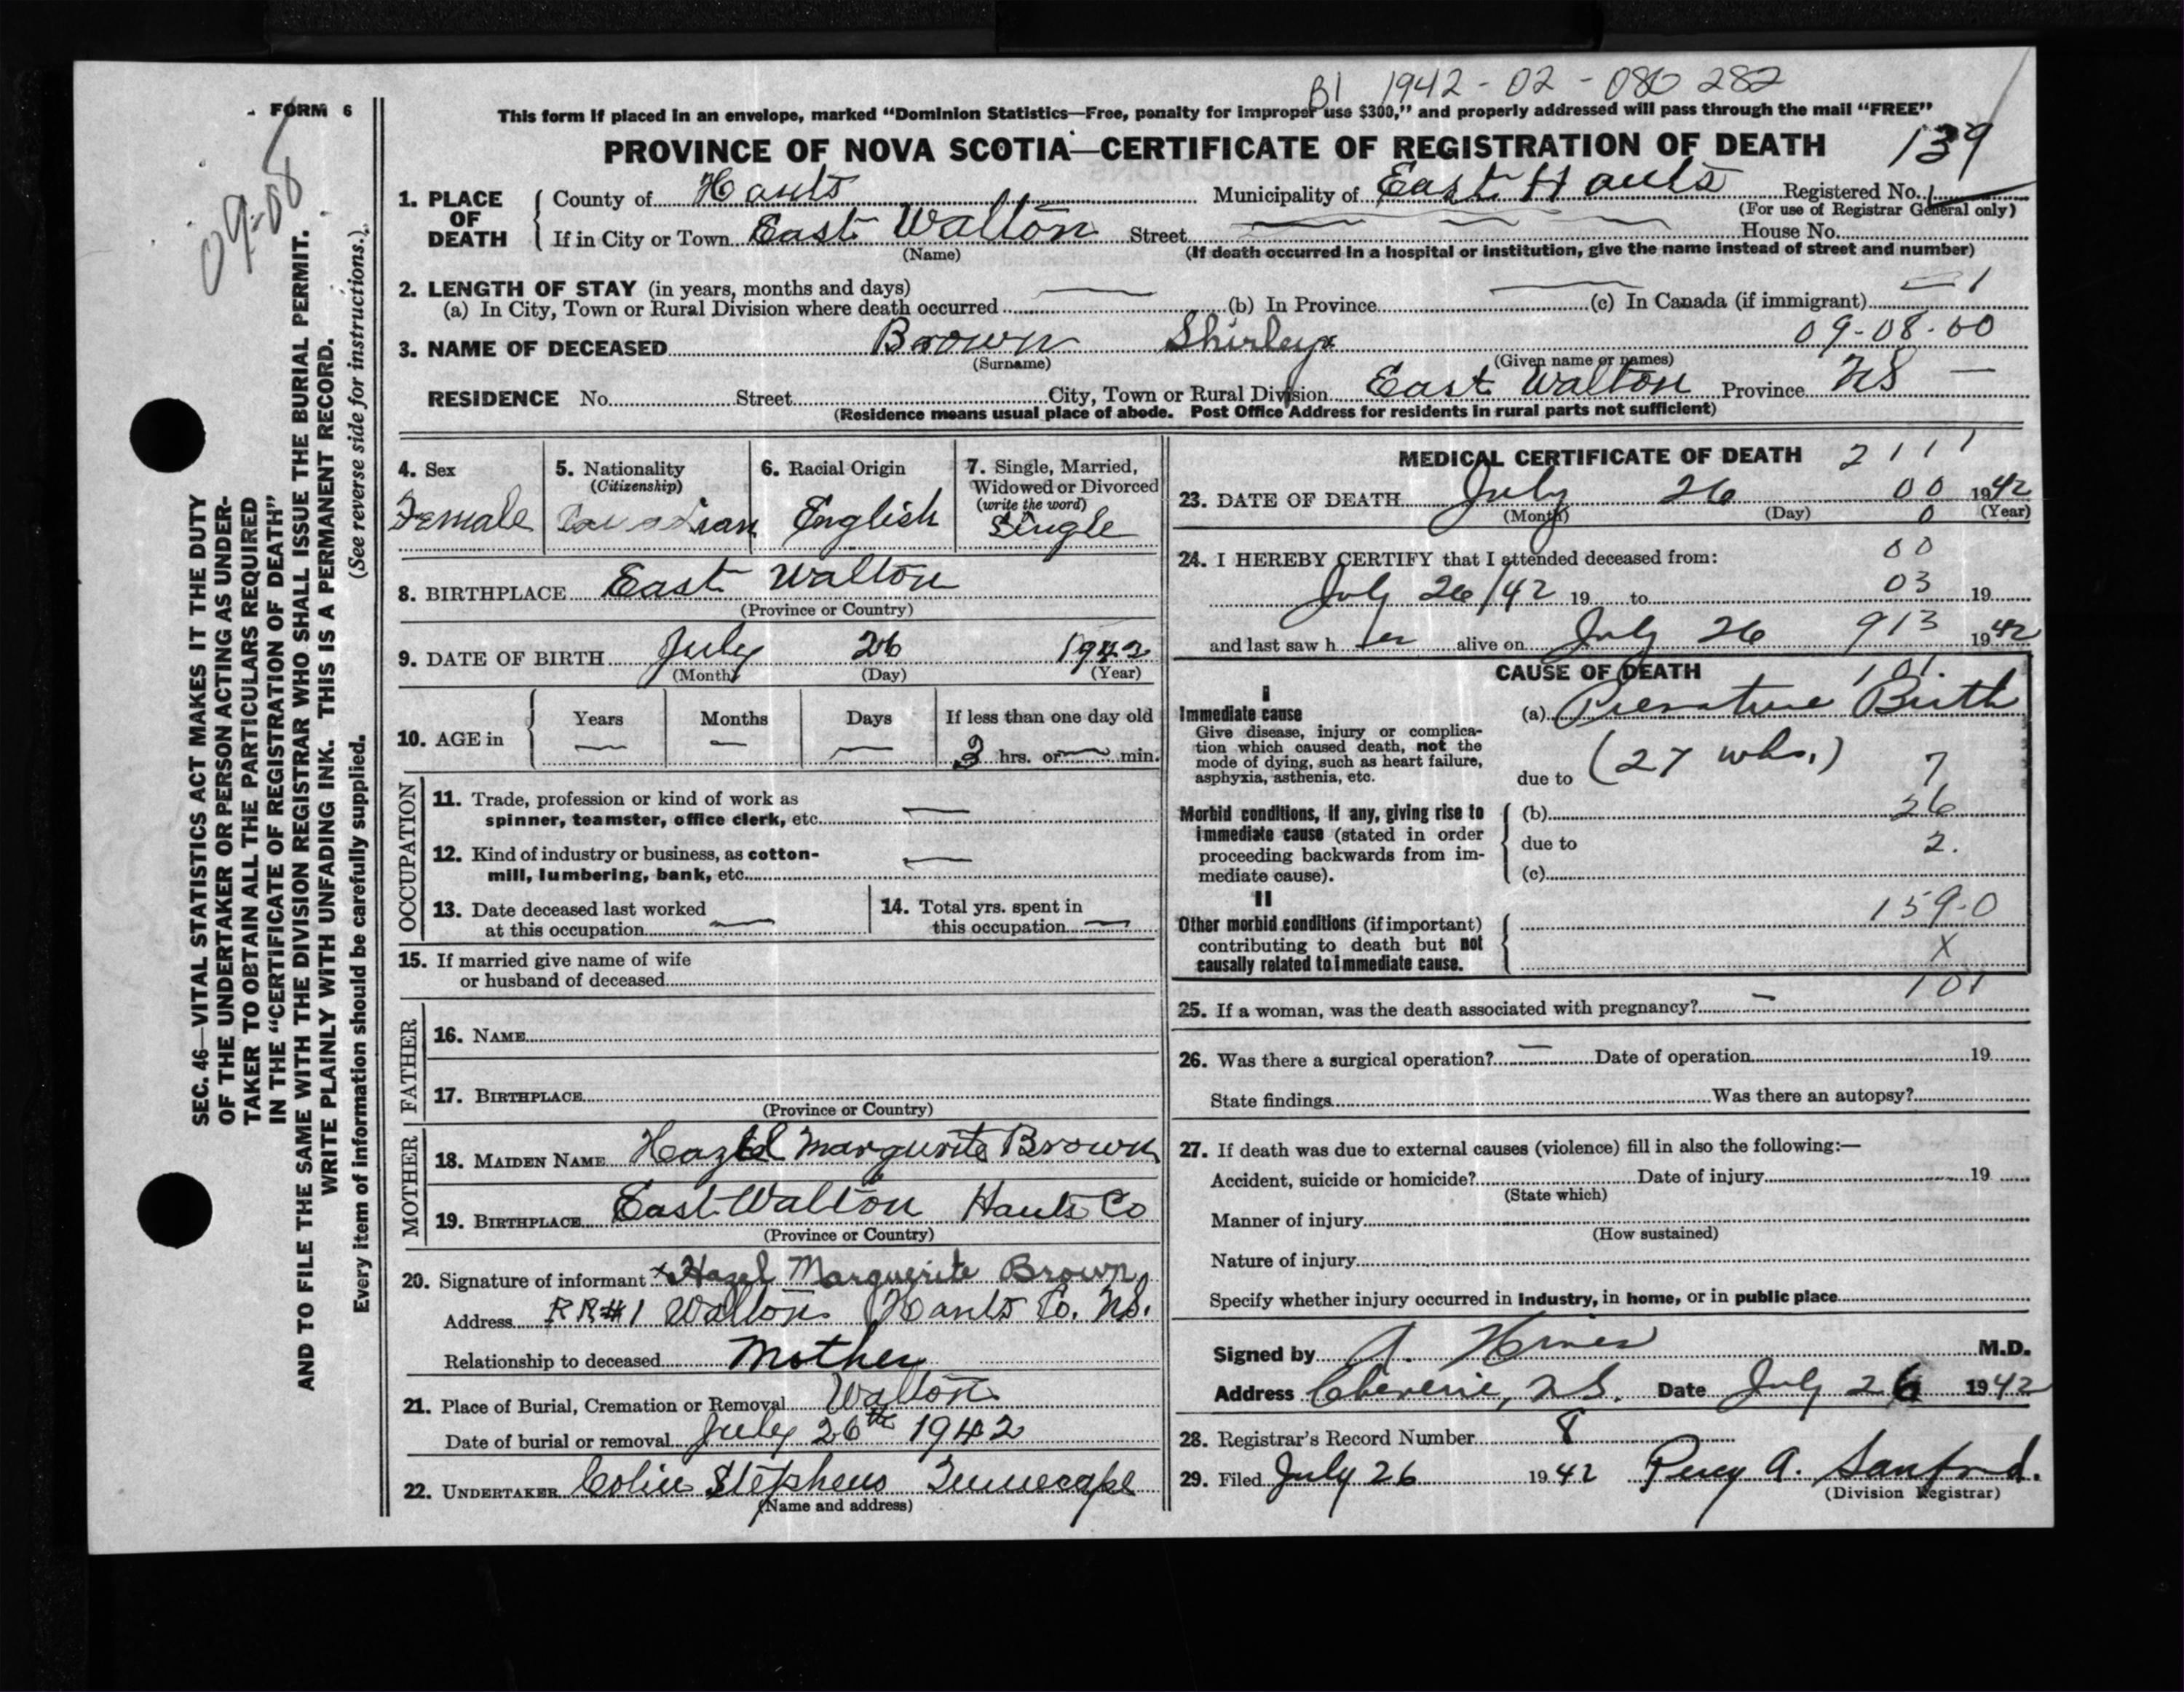 B1 1942-02-080282
FORM 6
This form if placed in an envelope, marked “Dominion Statistics—Free, penalty for improper use $300,” and properly addressed will pass through the mail “FREE”
PROVINCE OF NOVA SCOTIA—CERTIFICATE OF REGISTRATION OF DEATH 139
09-08
1. PLACE OF DEATH
County of Hants Municipality of East Hants Registered No.
(For use of Registrar General only)
If in City or Town East Walton Street House No.
(Name) (If death occurred in a hospital or institution, give the name instead of street and number)
2. LENGTH OF STAY (in years, months and days)
(a) In City, Town or Rural Division where death occurred (b) In Province (c) In Canada (if immigrant) 1
3. NAME OF DECEASED Brown Shirley 09-08-00
(Surname) (Given name or names)
RESIDENCE No. Street City, Town or Rural Division East Walton Province NS —
(Residence means usual place of abode. Post Office Address for residents in rural parts not sufficient)
4. Sex 5. Nationality (Citizenship) 6. Racial Origin 7. Single, Married, Widowed or Divorced (write the word)
Female Canadian English Single
8. BIRTHPLACE East Walton
(Province or Country)
9. DATE OF BIRTH July 26 1942
(Month) (Day) (Year)
10. AGE in Years Months Days If less than one day old
— — — 3 hrs. or — min.
OCCUPATION
11. Trade, profession or kind of work as
spinner, teamster, office clerk, etc. —
12. Kind of industry or business, as cotton-
mill, lumbering, bank, etc. —
13. Date deceased last worked
at this occupation —
14. Total yrs. spent in
this occupation —
15. If married give name of wife
or husband of deceased
FATHER
16. NAME
17. BIRTHPLACE
(Province or Country)
MOTHER
18. MAIDEN NAME Hazel Marguerite Brown
19. BIRTHPLACE East Walton Hants Co
(Province or Country)
20. Signature of informant x Hazel Marguerite Brown
Address RR#1 Walton Hants Co. NS.
Relationship to deceased Mother
21. Place of Burial, Cremation or Removal Walton
Date of burial or removal July 26th 1942
22. UNDERTAKER Colin Stephens Tennecape
(Name and address)
MEDICAL CERTIFICATE OF DEATH 2111
23. DATE OF DEATH July 26 00 1942
(Month) (Day) 0 (Year)
24. I HEREBY CERTIFY that I attended deceased from: 00
July 26/42 19 to 03 19
and last saw h er alive on July 26 913 1942
CAUSE OF DEATH 101
I
Immediate cause (a) Premature Birth
Give disease, injury or complica-
tion which caused death, not the
mode of dying, such as heart failure,
asphyxia, asthenia, etc. due to (27 wks.) 7
Morbid conditions, if any, giving rise to (b) 26
immediate cause (stated in order due to 2.
proceeding backwards from im-
mediate cause). (c)
II
159-0
Other morbid conditions (if important)
contributing to death but not X
causally related to immediate cause.
101
25. If a woman, was the death associated with pregnancy? –
26. Was there a surgical operation? — Date of operation 19
State findings Was there an autopsy?
27. If death was due to external causes (violence) fill in also the following:—
Accident, suicide or homicide? Date of injury 19
(State which)
Manner of injury
(How sustained)
Nature of injury
Specify whether injury occurred in industry, in home, or in public place
Signed by A. M.D.
Address Cheverie, NS. Date July 26 1942
28. Registrar's Record Number 8
29. Filed July 26 1942 Percy A. Sanford.
(Division Registrar)
SEC. 46—VITAL STATISTICS ACT MAKES IT THE DUTY
OF THE UNDERTAKER OR PERSON ACTING AS UNDER-
TAKER TO OBTAIN ALL THE PARTICULARS REQUIRED
IN THE “CERTIFICATE OF REGISTRATION OF DEATH”
AND TO FILE THE SAME WITH THE DIVISION REGISTRAR WHO SHALL ISSUE THE BURIAL PERMIT.
WRITE PLAINLY WITH UNFADING INK. THIS IS A PERMANENT RECORD.
Every item of information should be carefully supplied. (See reverse side for instructions.)